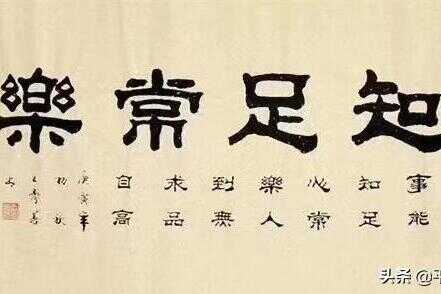 知足常樂
事能
知足
心常
樂人
到無
求品
自高
庚寅年
头条 @平